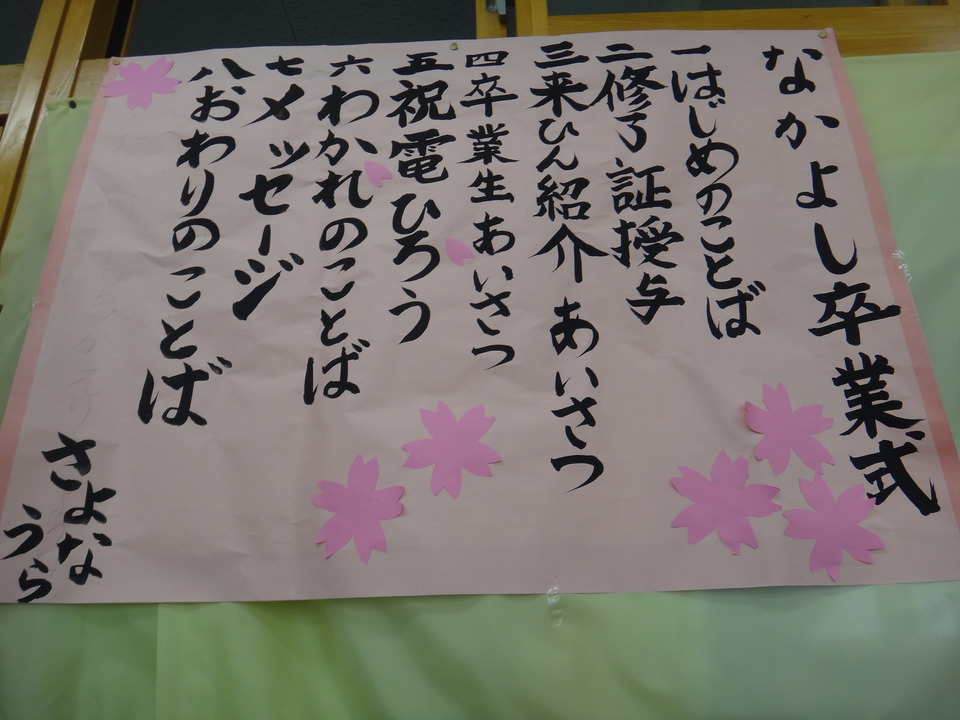 なかよし卒業式
一はじめのことば
二修了証授与
三来ひん紹介あいさつ
四卒業生あいさつ
五祝電ひろう
六わかれのことば
七メッセージ
八おわりのことば
さよなら
うら